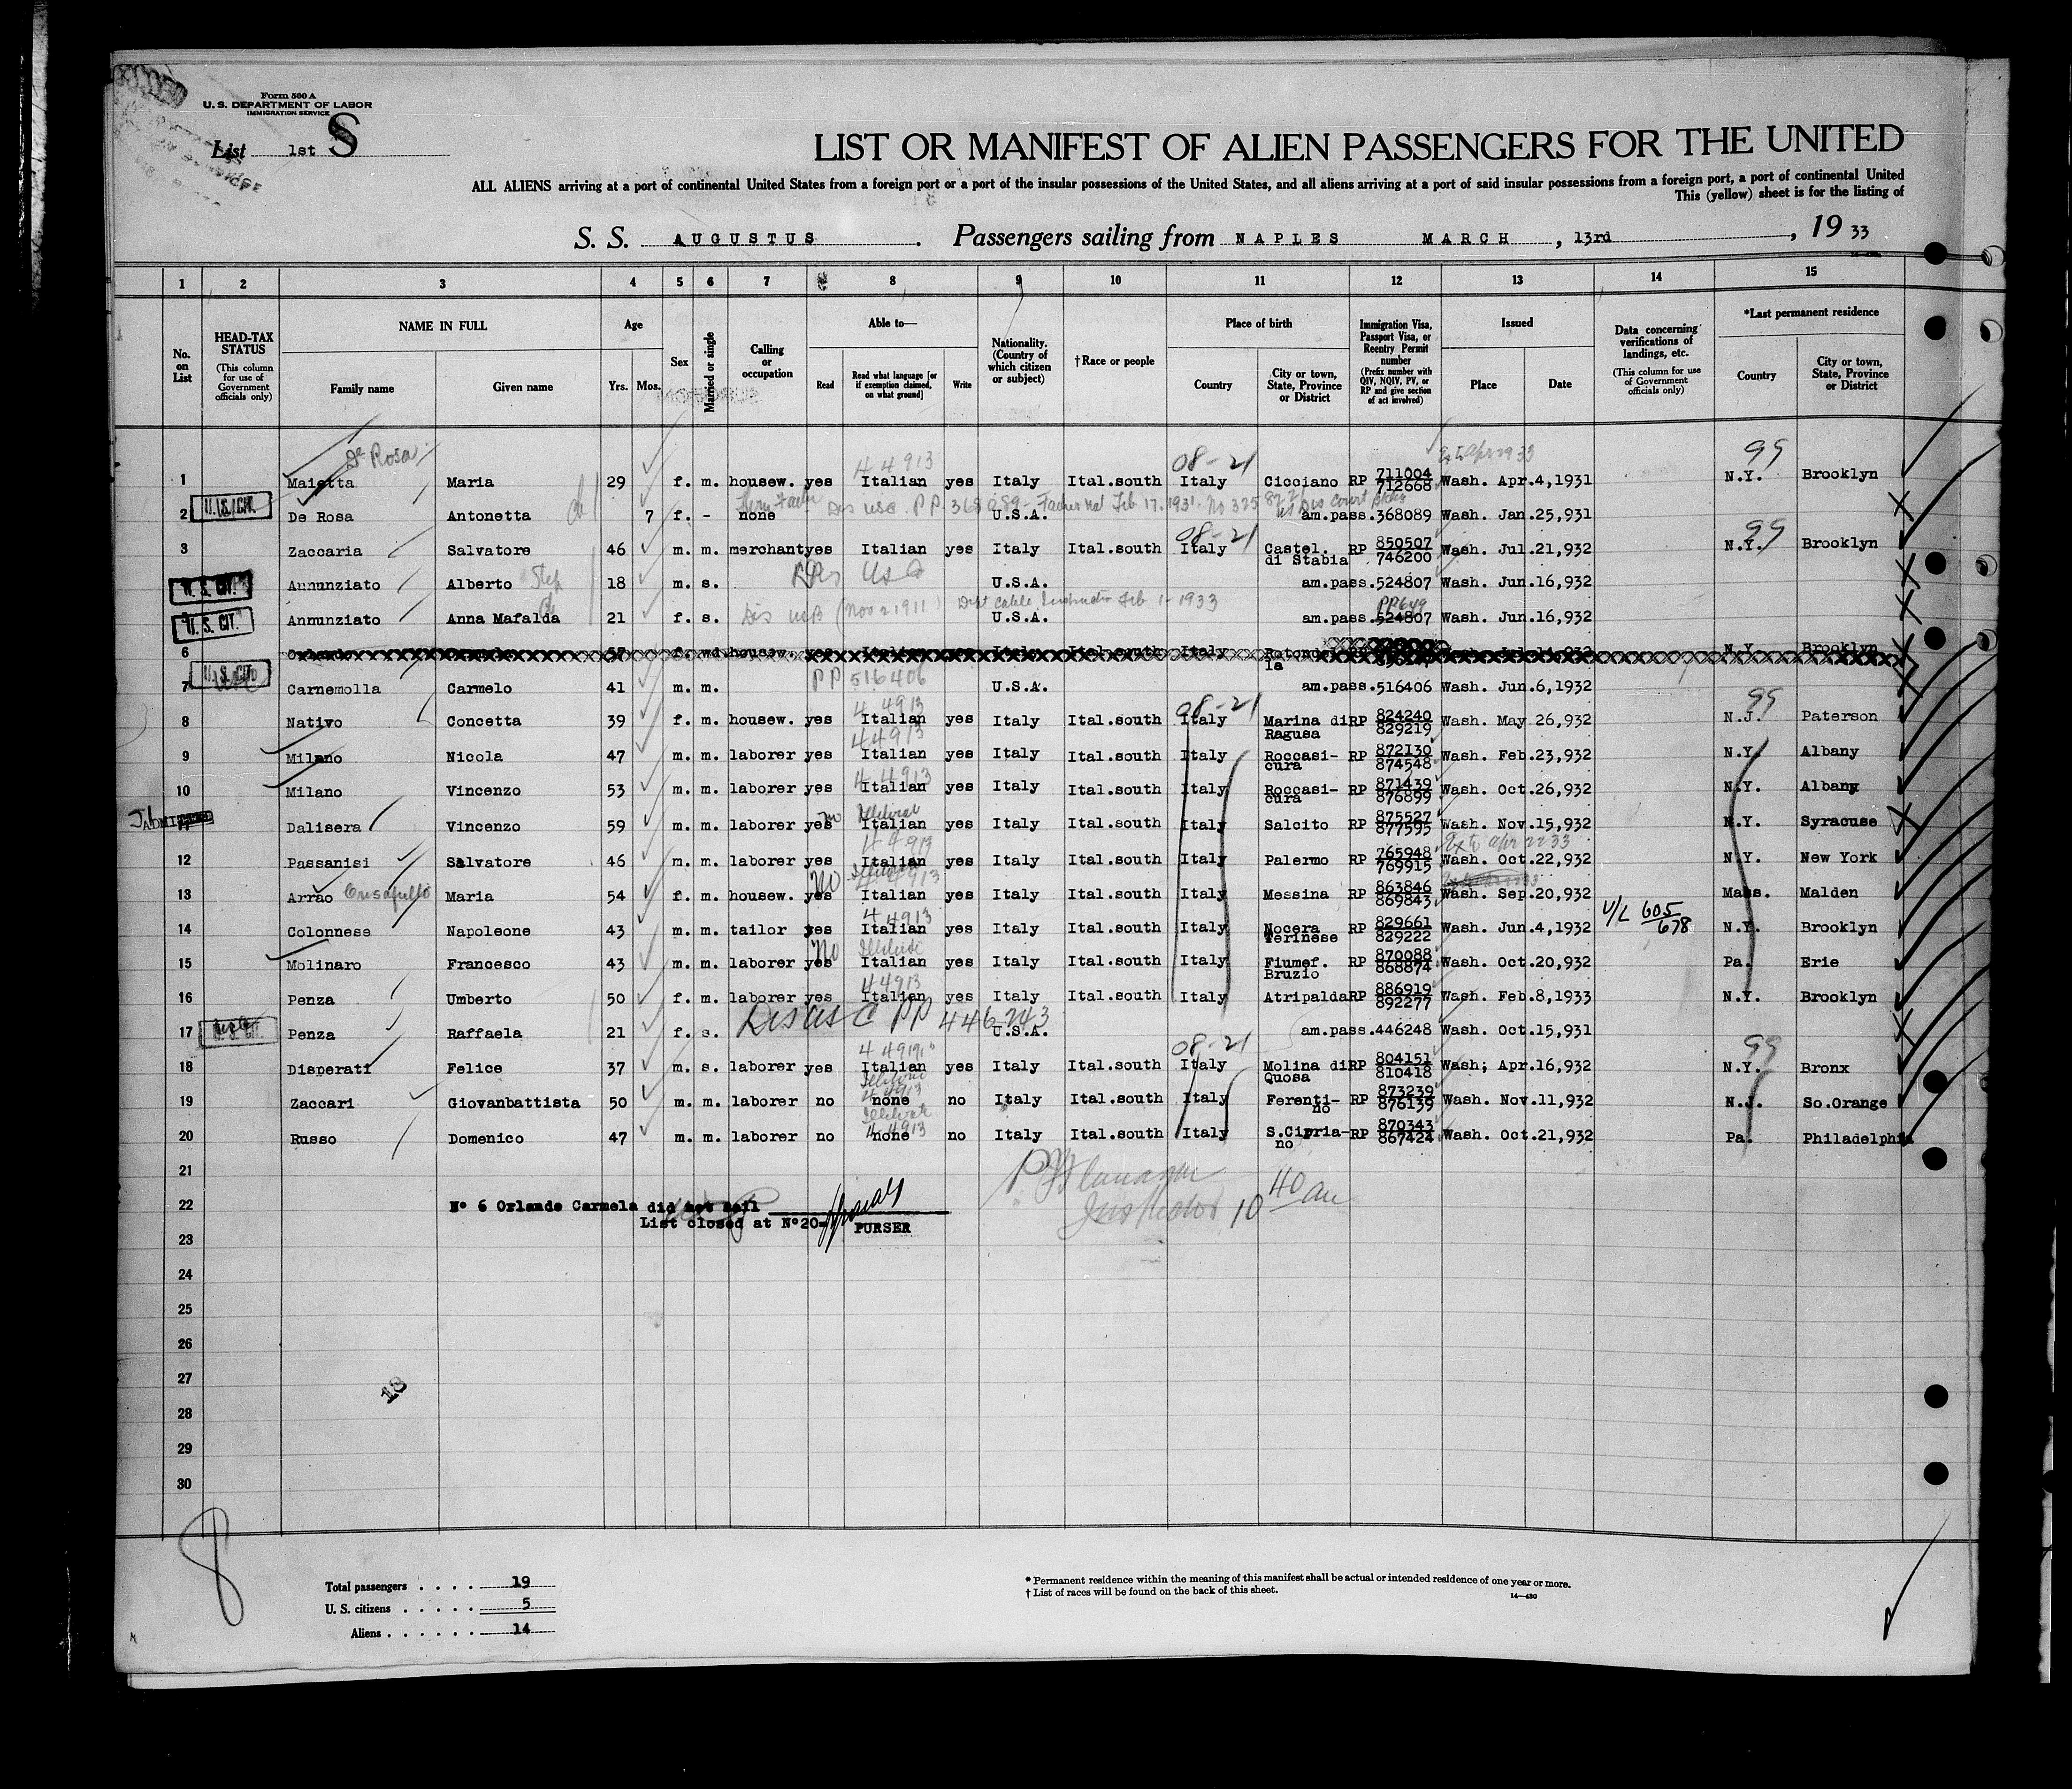 Form 500 A
U. S. DEPARTMENT OF LABOR
IMMIGRATION SERVICE
List 1st S
LIST OR MANIFEST OF ALIEN PASSENGERS FOR THE UNITED
ALL ALIENS arriving at a port of continental United States from a foreign port or a port of the insular possessions of the United States, and all aliens arriving at a port of said insular possessions from a foreign port, a port of continental United
This (yellow) sheet is for the listing of
S. S. AUGUSTUS . Passengers sailing from NAPLES MARCH , 13rd , 19 33
1 2 3 4 5 6 7 8 9 10 11 12 13 14 15
No. on List
HEAD-TAX STATUS (This column for use of Government officials only)
NAME IN FULL Family name Given name
Age Yrs. Mos.
Sex
Married or single
Calling or occupation
Able to— Read Read what language [or if exemption claimed, on what ground] Write
Nationality. (Country of which citizen or subject)
† Race or people
Place of birth Country City or town, State, Province or District
Immigration Visa, Passport Visa, or Reentry Permit number (Prefix number with QIV, NQIV, PV, or RP and give section of act involved)
Issued Place Date
Data concerning verifications of landings, etc. (This column for use of Government officials only)
*Last permanent residence Country City or town, State, Province or District
De Rosa 44913 08-21 99
1 Maietta Maria 29 f. m. housew. yes Italian yes Italy Ital.south Italy Cicciano RP 711004 712668 Wash. Apr.4,1931 N.Y. Brooklyn
U. S. CIT.
2 De Rosa Antonetta 7 f. - none U.S.A. am.pass.368089 Wash. Jan.25,931
08-21 99
3 Zaccaria Salvatore 46 m. m. merchant yes Italian yes Italy Ital.south Italy Castel. di Stabia RP 850507 746200 Wash. Jul.21,932 N.Y. Brooklyn
U. S. CIT. Annunziato Alberto Step 18 m. s. U.S.A. am.pass.524807 Wash. Jun.16,932
Dept Cable Feb 1-1933
U. S. CIT. Annunziato Anna Mafalda 21 f. s. U.S.A. am.pass.524807 Wash. Jun.16,932
6
U. S. CIT. PP 516406
7 Carnemolla Carmelo 41 m. m. U.S.A. am.pass.516406 Wash. Jun.6,1932
44913 08-21 99
8 Nativo Concetta 39 f. m. housew. yes Italian yes Italy Ital.south Italy Marina di Ragusa RP 824240 829219 Wash. May 26,932 N.J. Paterson
44913
9 Milano Nicola 47 m. m. laborer yes Italian yes Italy Ital.south Italy Roccasi-cura RP 872130 874548 Wash. Feb.23,932 N.Y. Albany
44913
10 Milano Vincenzo 53 m. m. laborer yes Italian yes Italy Ital.south Italy Roccasi-cura RP 871439 876899 Wash. Oct.26,932 N.Y. Albany
no
Dalisera Vincenzo 59 m. m. laborer yes Italian yes Italy Ital.south Italy Salcito RP 875527 877595 Wash. Nov.15,932 N.Y. Syracuse
44913
12 Passanisi Salvatore 46 m. m. laborer yes Italian yes Italy Ital.south Italy Palermo RP 765948 769915 Wash. Oct.22,932 N.Y. New York
no 44913
13 Arrao Maria 54 f. m. housew. yes Italian yes Italy Ital.south Italy Messina RP 863846 869843 Wash. Sep.20,932 Mass. Malden
44913 V/L 605/678
14 Colonnese Napoleone 43 m. m. tailor yes Italian yes Italy Ital.south Italy Nocera Terinese RP 829661 829222 Wash. Jun.4,1932 N.Y. Brooklyn
no
15 Molinaro Francesco 43 m. m. laborer yes Italian yes Italy Ital.south Italy Fiumef. Bruzio RP 870088 868874 Wash. Oct.20,932 Pa. Erie
44913
16 Penza Umberto 50 f. m. laborer yes Italian yes Italy Ital.south Italy Atripalda RP 886919 892277 Wash. Feb.8,1933 N.Y. Brooklyn
17 Penza Raffaela 21 f. s. U.S.A. am.pass.446248 Wash. Oct.15,931
08-21 99
18 Disperati Felice 37 m. s. laborer yes Italian yes Italy Ital.south Italy Molina di Quosa RP 804151 810418 Wash; Apr.16,932 N.Y. Bronx
44913
19 Zaccari Giovanbattista 50 m. m. laborer no none no Italy Ital.south Italy Ferenti-no RP 873239 876139 Wash. Nov.11,932 N.J. So.Orange
44913
20 Russo Domenico 47 m. m. laborer no none no Italy Ital.south Italy S.Cipria-no RP 870343 867424 Wash. Oct.21,932 Pa. Philadelphia
21
22 N° 6 Orlando Carmela did not sail
List closed at N°20= PURSER
Inspector 10 40 am
23
24
25
26
27
13
28
29
30
8
Total passengers . . . . 19
U. S. citizens . . . . . 5
Aliens . . . . . . 14
* Permanent residence within the meaning of this manifest shall be actual or intended residence of one year or more.
† List of races will be found on the back of this sheet.
14—430